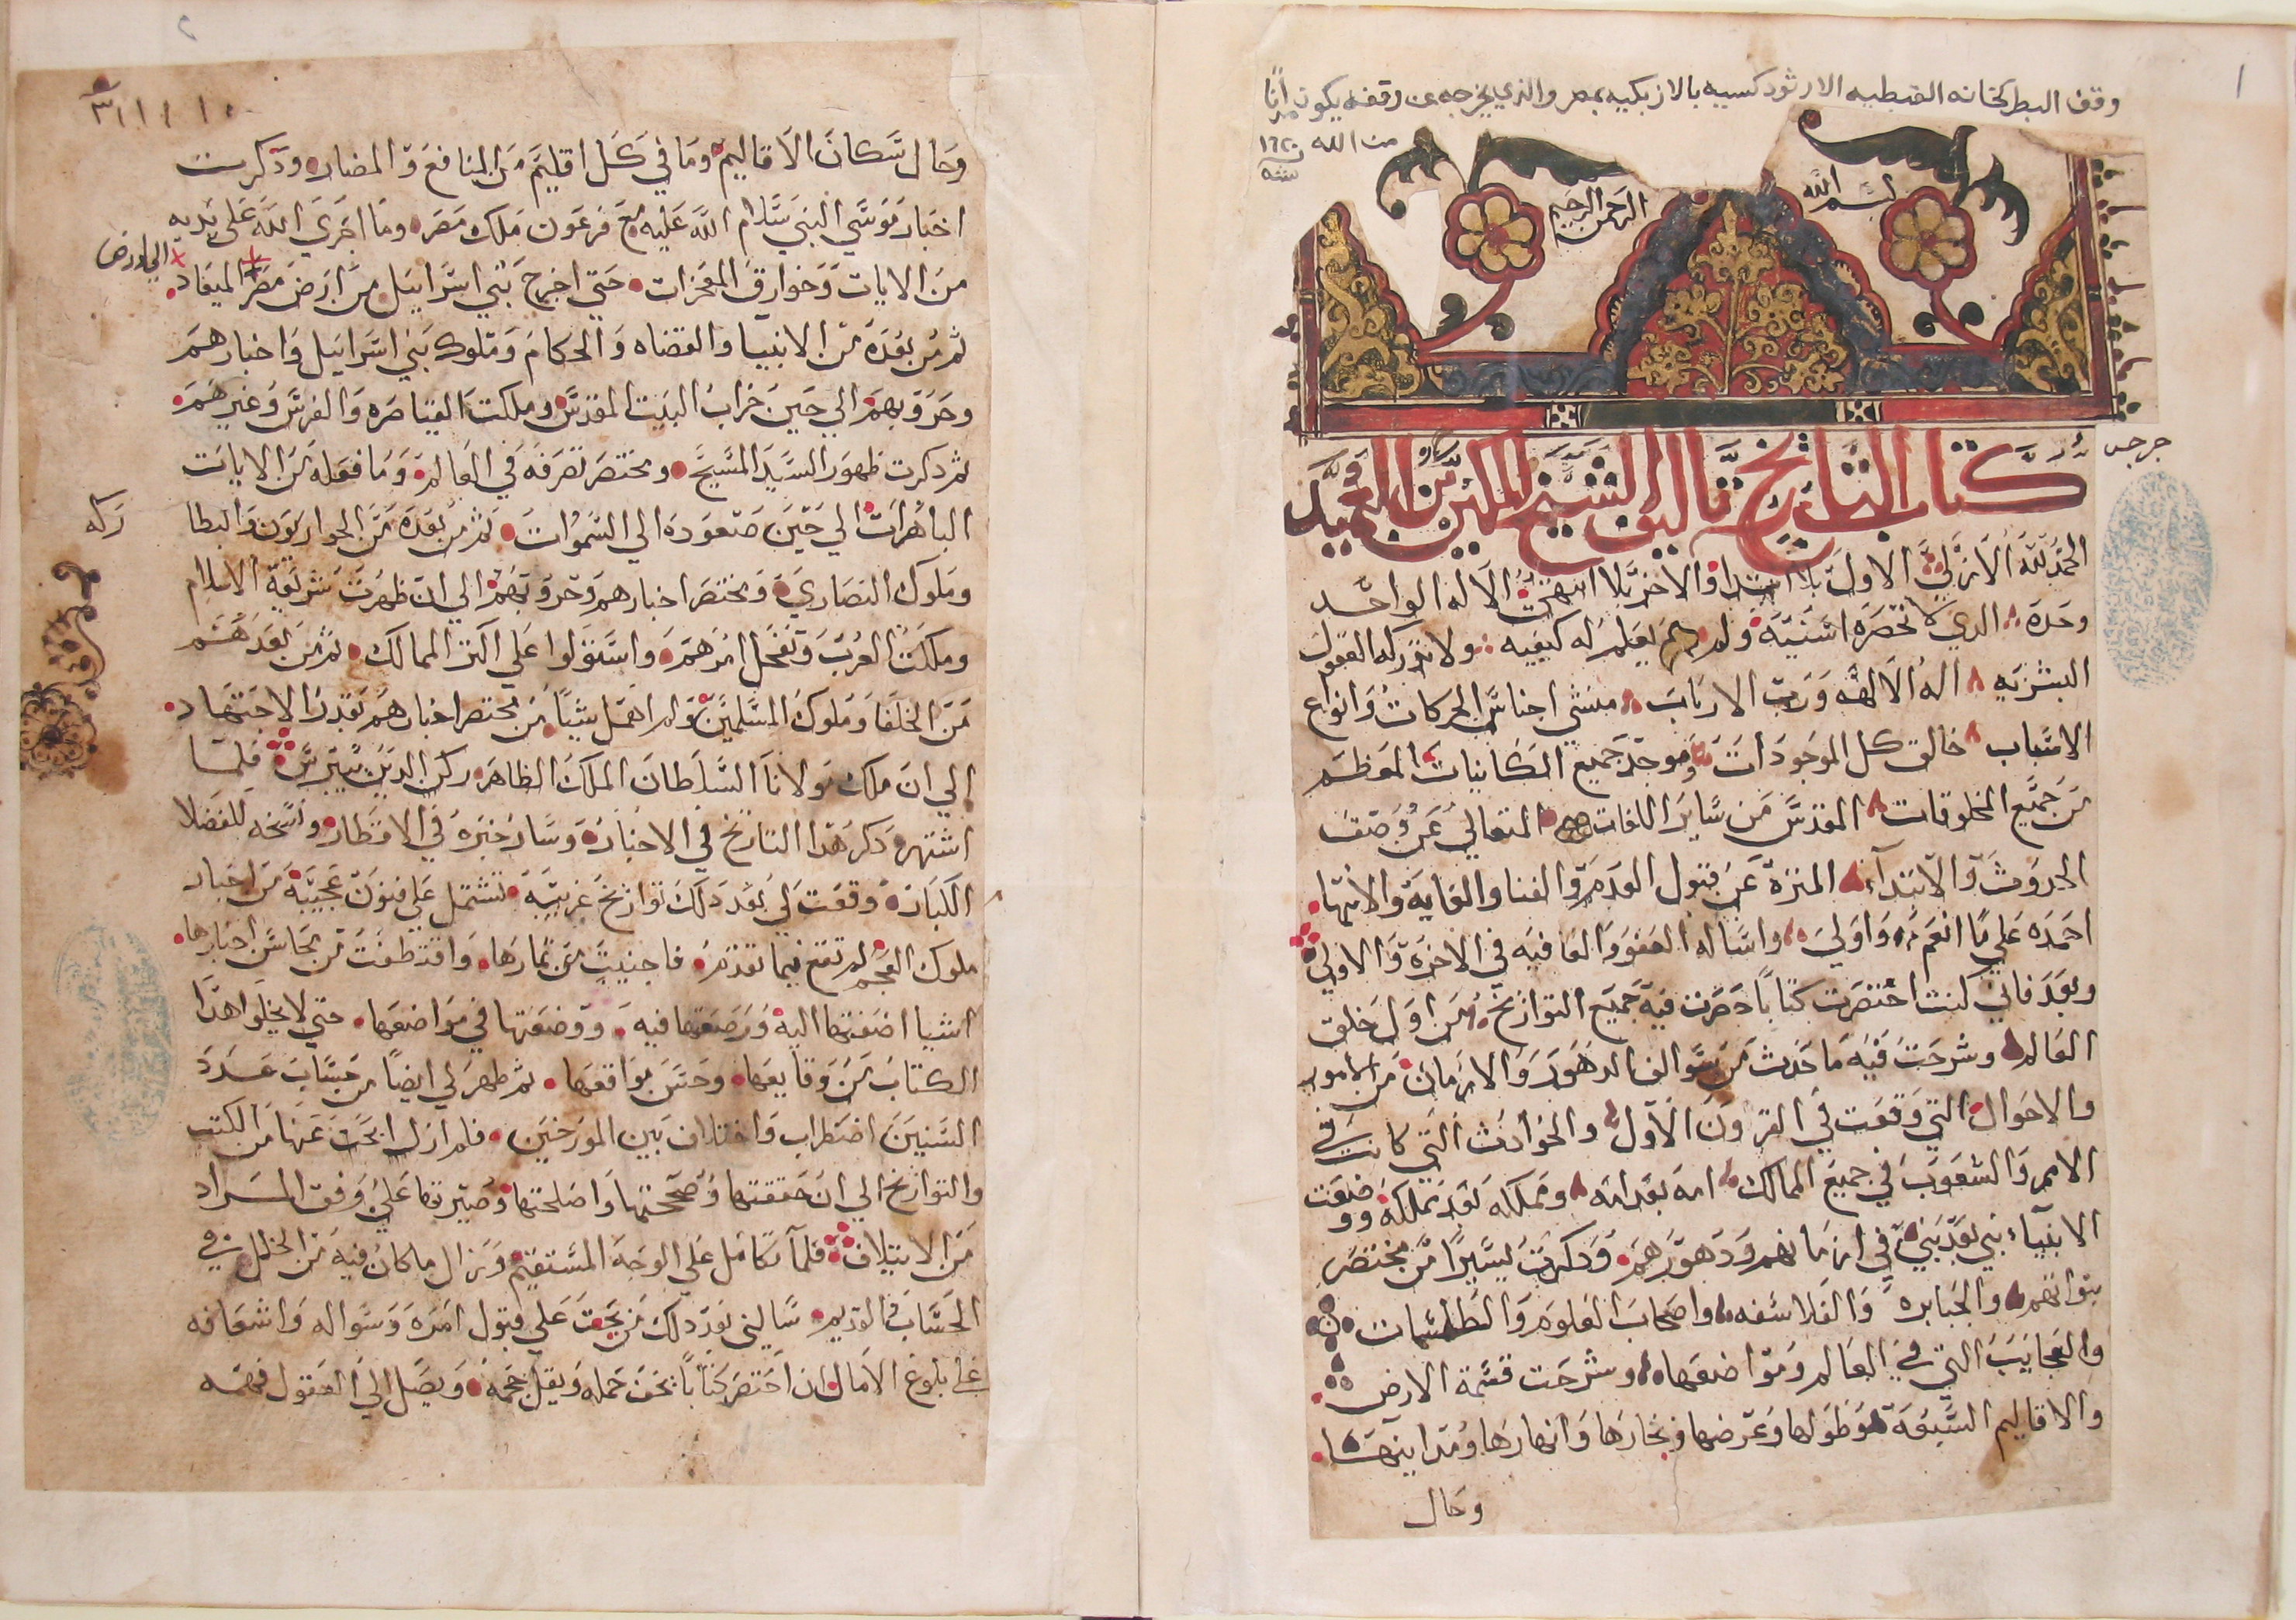 وقف البطركخانه القبطيه الارثودكسيه بالازبكيه بمصر والذي يخرجه عن وقفه يكون مدانًا
من الله ١٦٢٠
سنة
بسم الله
الرحمن الرحيم
جرجس
كتاب التاريخ تاليف الشيخ المكين بن العميد
الحمد لله الازلي الاول بلا ابتدا والاخر بلا انتهي الاله الواحد
وحده الدي لا تحصره اثنيية ولم يعلم له كيفيه ولا تدركه العقول
البشريه اله الالهه ورب الارباب منشي اجناس الحركات وانواع
الاسباب خالق كل الموجودات وموجد جميع الكاينات المعظم
من جميع المخلوقات المقدس من ساير اللغات المتعالي عن وصف
الحدوث والابتدآء المنزة عن قبول العدم والفنا والغاية والانتها
احمده علي ما انعم واولي واساله العفو والعافيه في الاخرة والاولي
وبعد فاني كنت اختصرت كتابًا حصرت فيه جميع التواريخ من اول خلق
العالم وشرحت فيه ما حدث من سوالف الدهور والازمان من الامور
والاحوال التي وقعت في القرون الاول والحوادث التي كانت في
الامم والشعوب في جميع الممالك امه بعد امه ومملكه بعد مملكه ووضعت
الانبياء نبي بعد نبي في ازمانهم ودهورهم ودكرت يسيرًا من مختصر
نبواتهم والجبابره والفلاسفه واصحاب العلوم والطلسمات
والعجايب التي في العالم ومواضعها وشرحت قسمة الارض
والاقاليم السبعة وطولها وعرضها وبحارها وانهارها ومداينها
وحال
وحال سكان الاقاليم وما في كل اقليم من المنافع والمضار ودكرت
اخبار موسي النبي سلام الله عليه مع فرعون ملك مصر وما اجري الله علي يديه
من الايات وخوارق المعجزات حتي اخرج بني اسراييل من ارض مصر الميعاد
الي ارض
ثم من بعده من الانبيا والقضاه والحكام وملوك بني اسراييل واخبارهم
وحروبهم الي حين خراب البيت المقدس وملكت القياصره والفرس وغيرهم
ثم دكرت ظهور السيد المسيح ومختصر تصرفه في العالم وما فعله من الايات
الباهرات الي حين صعوده الي السموات ثم من بعده من الحواريون والبطا
ركه
وملوك النصاري ومختصر اخبارهم وحروبهم الي ان ظهرت شريعة الاسلام
وملكت العرب وتفحل امرهم واستولوا علي اكثر الممالك ثم من بعدهم
من الخلفا وملوك المسلمين ولم اهمل شيًا من مختصر اخبارهم بقدر الاجتهاد
الي ان ملك مولانا السلطان الملك الظاهر ركن الدين بيبرس فلما
اشتهر دكر هدا التاريخ في الاخبار وسار خبره في الاقطار ونسخه للفضلا
الكبار وقعت لي بعد دلك تواريخ غريبة تشتمل علي فنون عجيبة من اخبار
ملوك العجم لم تقع فيما تقدم فاجنيت من ثمارها واقتطفت من محاسن اخبارها
اشيا اضفتها اليه ورصعتها فيه ووضعتها في مواضعها حتي لا يخلوا هدا
الكتاب من وقايعها وحسن مواقعها ثم ظهر لي ايضًا من حساب عدد
السنين اضطراب واختلاف بين المورخين فلم ازل ابحث عنها من الكتب
والتواريخ الي ان حققتها وصححتها واصلحتها وصيرتها علي وفق المراد
من الايتلاف فلما تكامل علي الوجه المستقيم وزال ما كان فيه من الخلل في
الحساب القديم سالني بعد دلك من يجب علي قبول امره وسواله واشعافه
علي بلوغ الامال ان اختصر كتابًا يخف حمله ويقل حجمه ويصل الي العقول فهمه